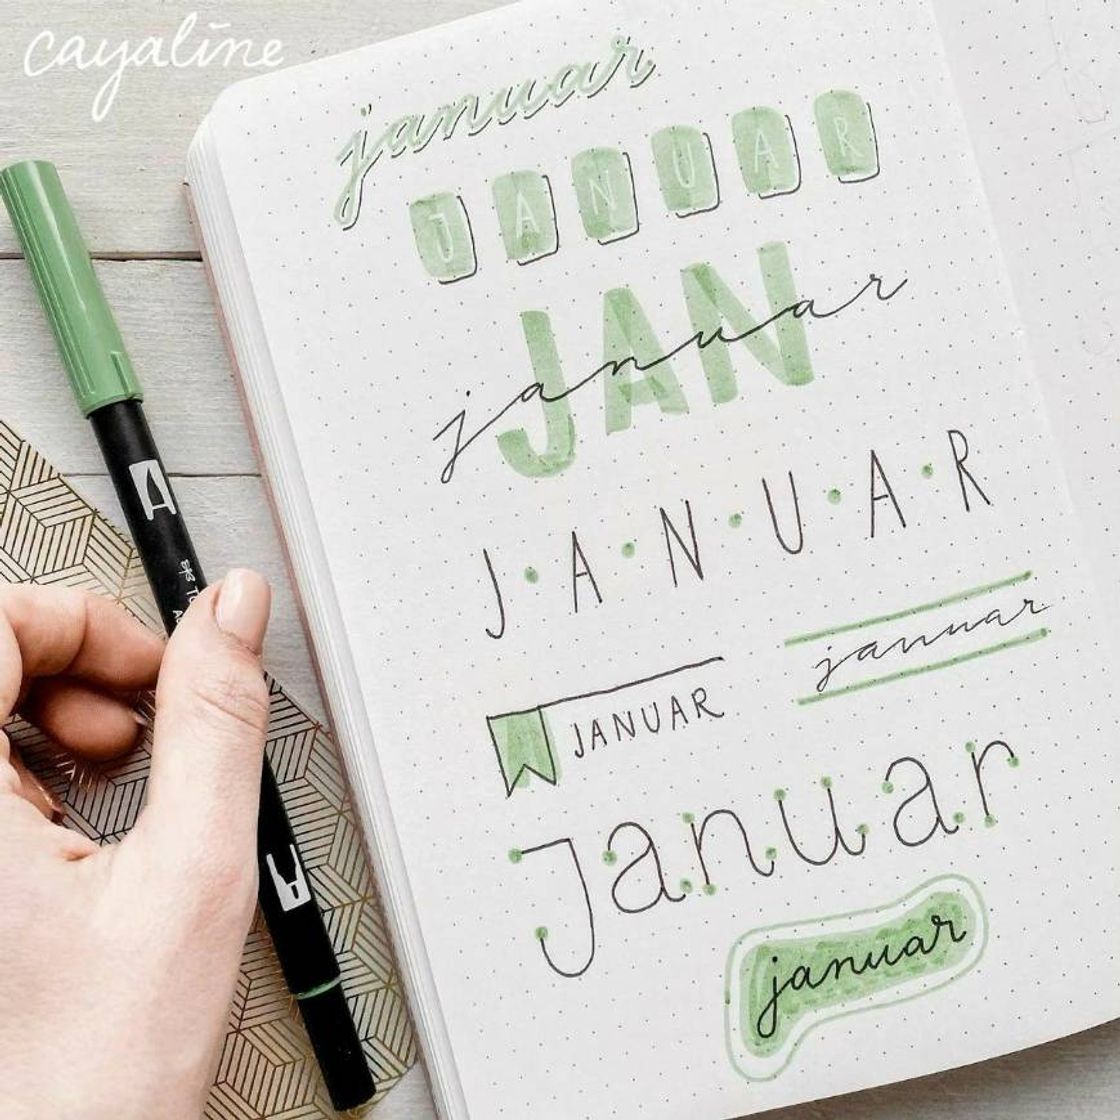 cayaline
januar
JANUAR
JAN
januar
J·A·N·U·A·R
januar
JANUAR
januar
januar